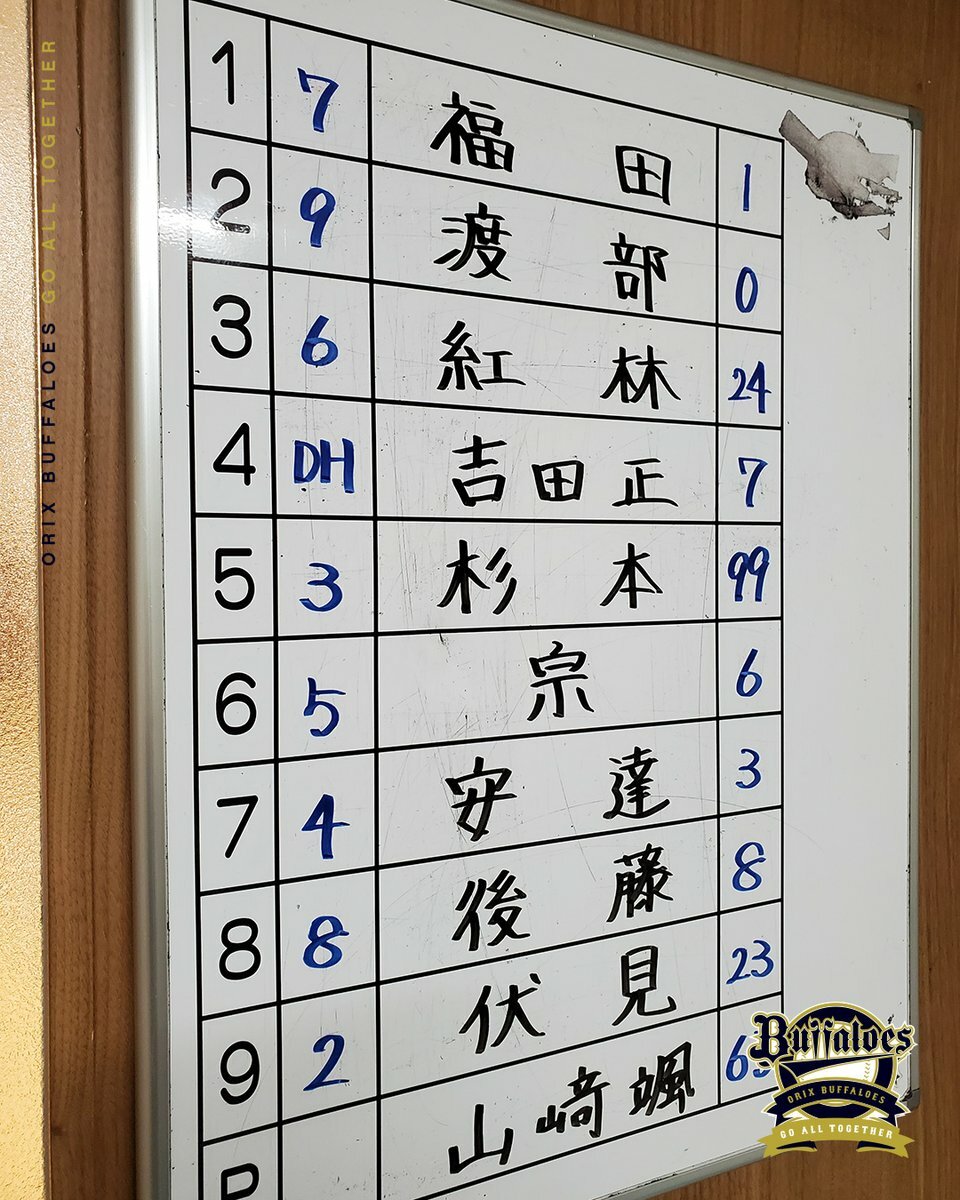 1 7 福田 1
2 9 渡部 0
3 6 紅林 24
4 DH 吉田正 7
5 3 杉本 99
6 5 宗 6
7 4 安達 3
8 8 後藤 8
9 2 伏見 23
P 山﨑颯
ORIX BUFFALOES GO ALL TOGETHER
Buffaloes
ORIX BUFFALOES
GO ALL TOGETHER